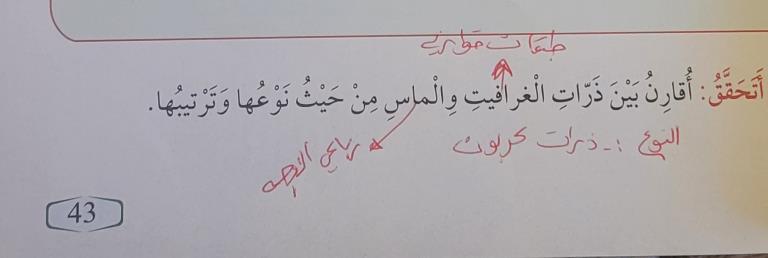 طبقات متوازية
أَتَحَقَّقُ: أُقارِنُ بَيْنَ ذَرّاتِ الْغرافيتِ والْماسِ مِنْ حَيْثُ نَوْعُها وَتَرْتيبُها.
النوع :- ذرات كربون
رباعي الأوجه
43